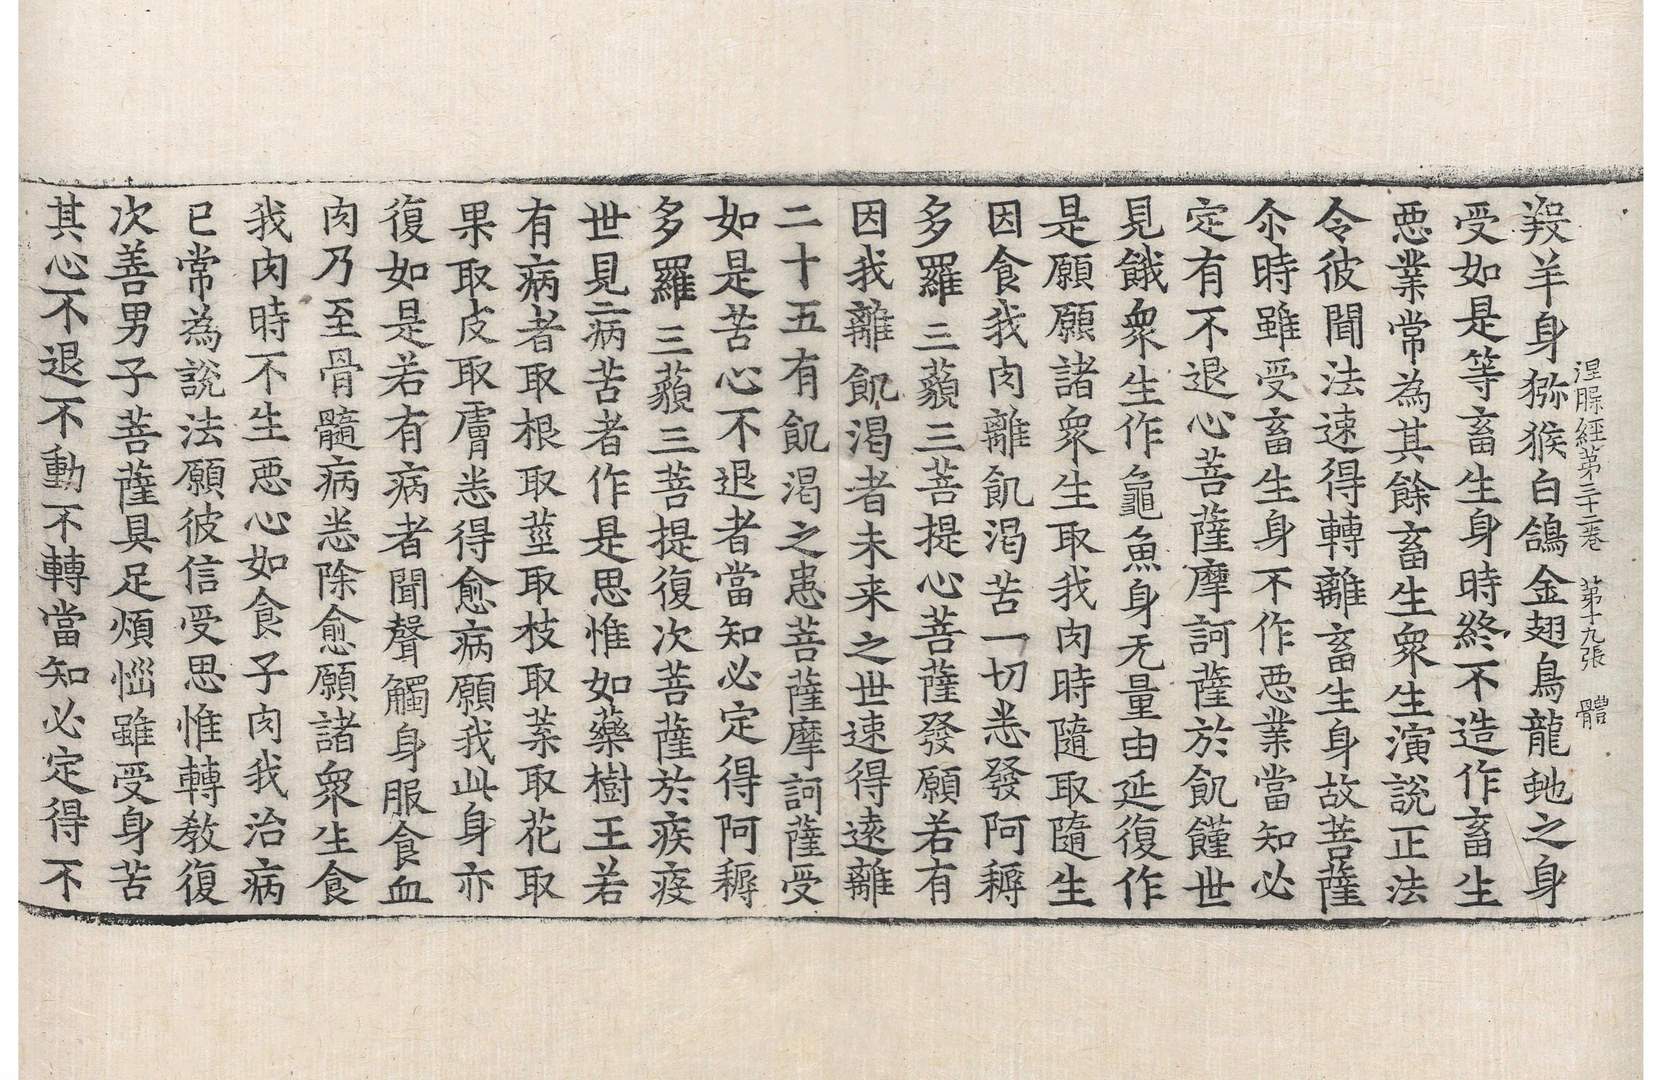 涅槃經第三十二卷 第十九張 體
羖羊身獼猴白鴿金翅鳥龍虵之身
受如是等畜生身時終不造作畜生
惡業常為其餘畜生衆生演說正法
令彼聞法速得轉離畜生身故菩薩
尒時雖受畜生身不作惡業當知必
定有不退心菩薩摩訶薩於飢饉世
見餓衆生作龜魚身无量由延復作
是願願諸衆生取我肉時隨取隨生
因食我肉離飢渴苦一切悉發阿耨
多羅三藐三菩提心菩薩發願若有
因我離飢渴者未来之世速得遠離
二十五有飢渴之患菩薩摩訶薩受
如是苦心不退者當知必定得阿耨
多羅三藐三菩提復次菩薩於疾疫
世見病苦者作是思惟如藥樹王若
有病者取根取莖取枝取葉取花取
果取皮取膚悉得愈病願我此身亦
復如是若有病者聞聲觸身服食血
肉乃至骨髓病悉除愈願諸衆生食
我肉時不生惡心如食子肉我治病
已常為說法願彼信受思惟轉教復
次善男子菩薩具足煩惱雖受身苦
其心不退不動不轉當知必定得不